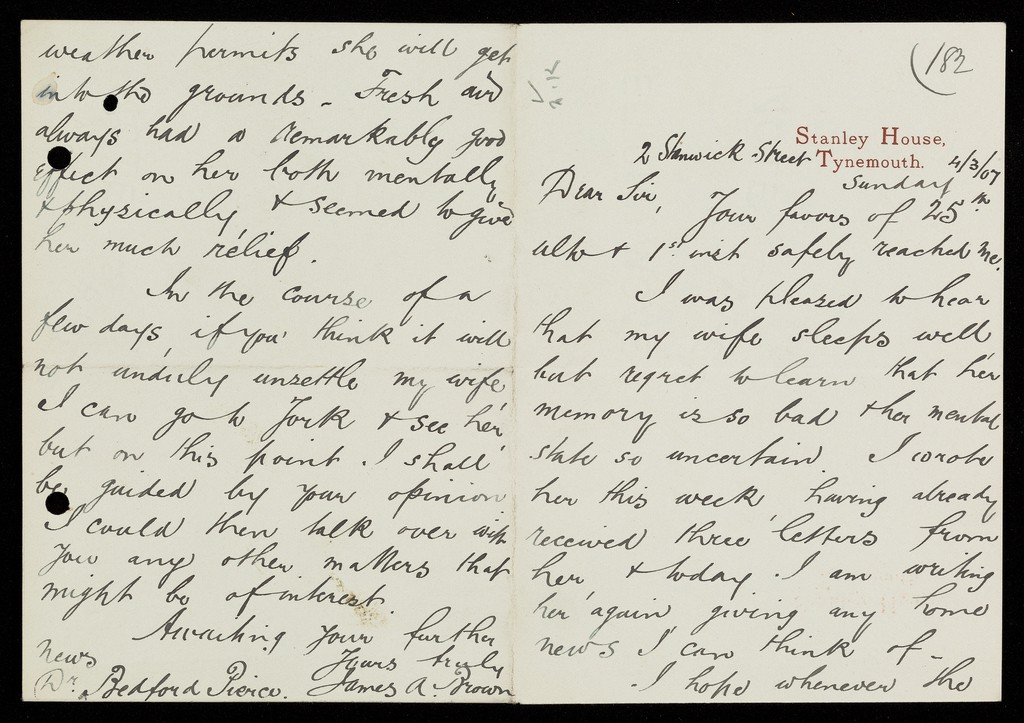 (182
Stanley House,
2 Stanwick Street Tynemouth. 4/3/07
Sunday
Dear Sir, Your favors of 25th
ulto & 1st inst safely reached me.
I was pleased to hear
that my wife sleeps well
but regret to learn that her
memory is so bad & her mental
state so uncertain. I wrote
her this week, having already
received three letters from
her, & today I am writing
her again, giving any home
news I can think of –
I hope whenever the
weather permits she will get
into the grounds – Fresh air
always had a remarkably good
effect on her both mentally
& physically & seemed to give
her much relief.
In the course of a
few days, if you think it will
not unduly unsettle my wife
I can go to York & see her,
but on this point I shall
be guided by your opinion
I could then talk over with
you any other matters that
might be of interest.
Awaiting your further
news
Yours truly
Dr. Bedford Pierce. James A. Brown